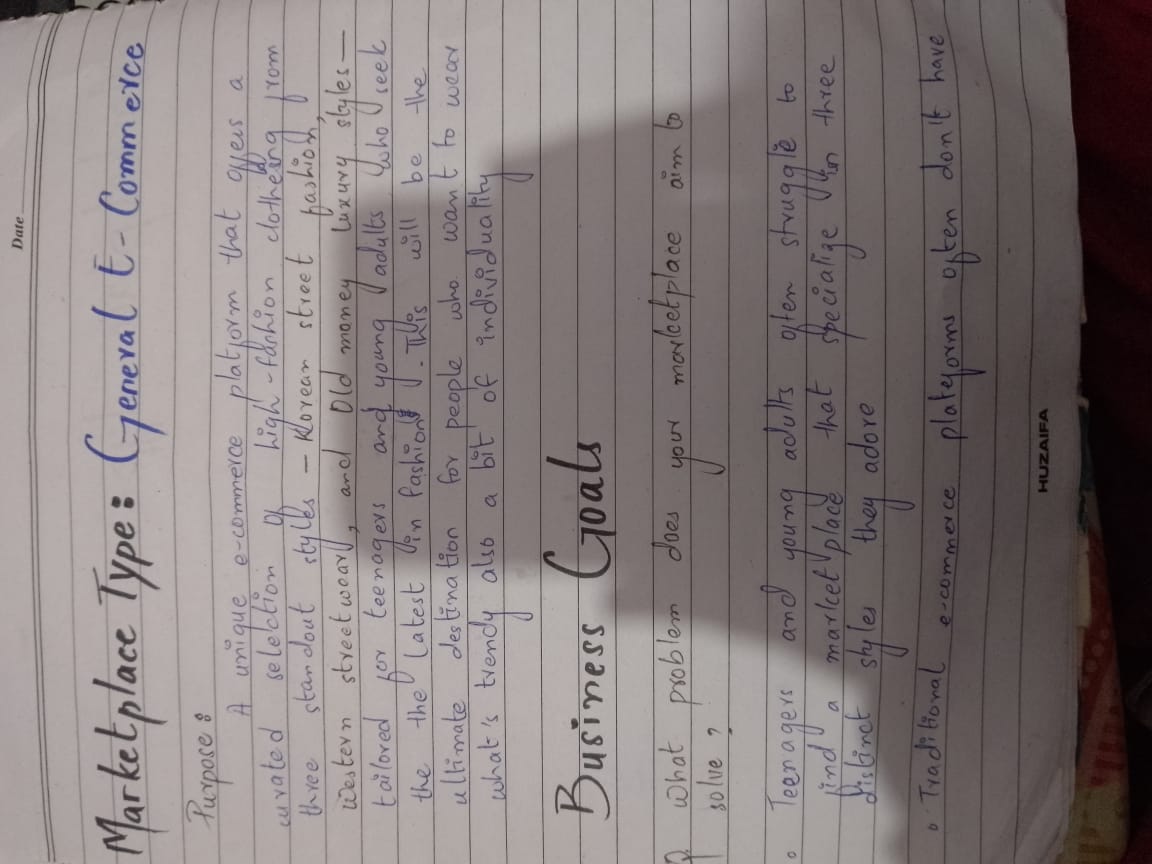 Date
Marketplace Type: General E-Commerce
Purpose:
A unique e-commerce platform that offers a
curated selelction of high-fashion clotheing from
three standout styles — Korean street fashion,
Western streetwear, and Old money luxury styles—
tailored for teenagers and young adults who seek
the the latest in fashion. This will be the
ultimate destination for people who want to wear
what's trendy also a bit of individuality
Business Goals
Q what problem does your marketplace aim to
solve?
◦ Teenagers and young adults often struggle to
find a market place that specialize in three
distinct styles they adore
◦ Traditional e-commerce plateforms often don't have
HUZAIFA